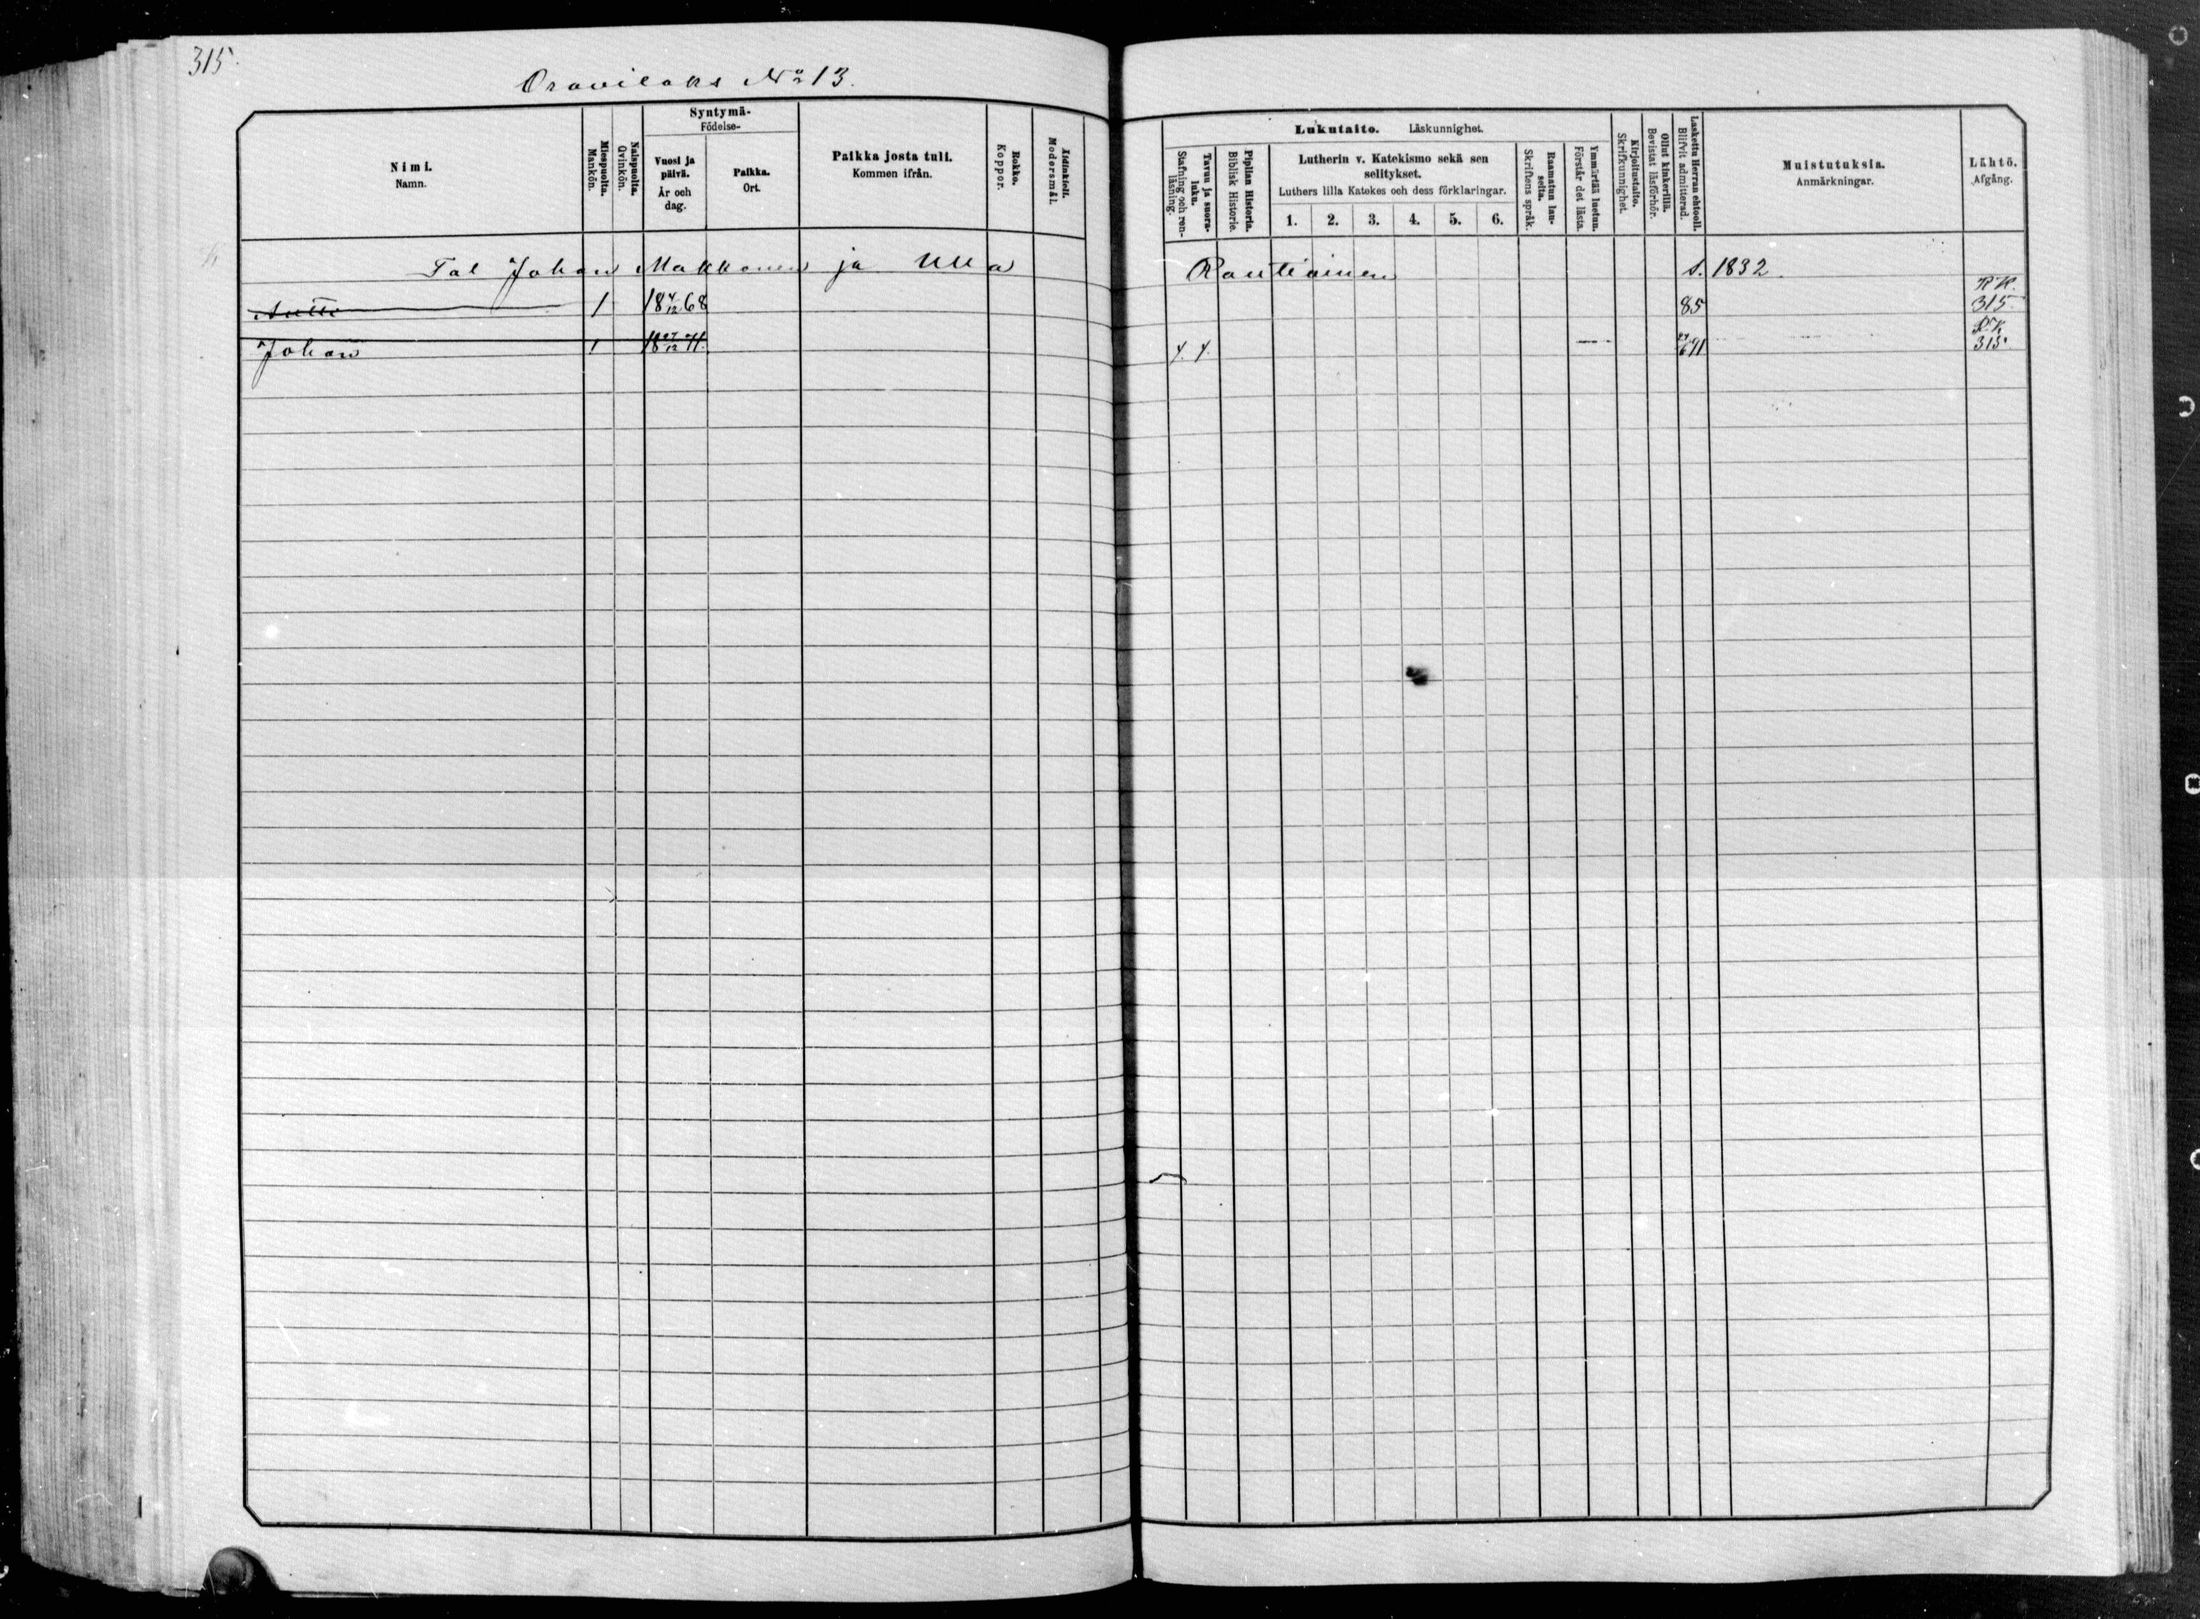 315.
Oravilaks No 13.
Nimi.
Namn.
Miespuolta.
Mankön.
Naispuolta.
Qvinkön.
Syntymä-
Födelse-
Vuosi ja
päivä.
År och
dag.
Paikka.
Ort.
Paikka josta tuli.
Kommen ifrån.
Rokko.
Koppor.
Äidinkieli.
Modersmål.
Lukutaito. Läskunnighet.
Tavuu ja suora-
luku.
Stafning och ren-
läsning.
Piplian Historia.
Biblisk Historie.
Lutherin v. Katekismo sekä sen
selitykset.
Luthers lilla Katekes och dess förklaringar.
1. 2. 3. 4. 5. 6.
Raamatun lau-
seita.
Skriftens språk.
Ymmärtää luetun.
Förstår det lästa.
Kirjoitustaito.
Skrifkunnighet.
Ollut kinkerillä.
Bevistat läsförhör.
Laskettu Herran ehtoolle.
Blifvit admitterad.
Muistutuksia.
Anmärkningar.
Lähtö.
Afgång.
Tal Johan Makkonen ja Ulla Rautiainen s. 1832.
Antti 1 18 4/12 68 85 R.K. 315.
Johan 1 18 27/12 71. 4. 4. — 24/6 91 R.K. 315.